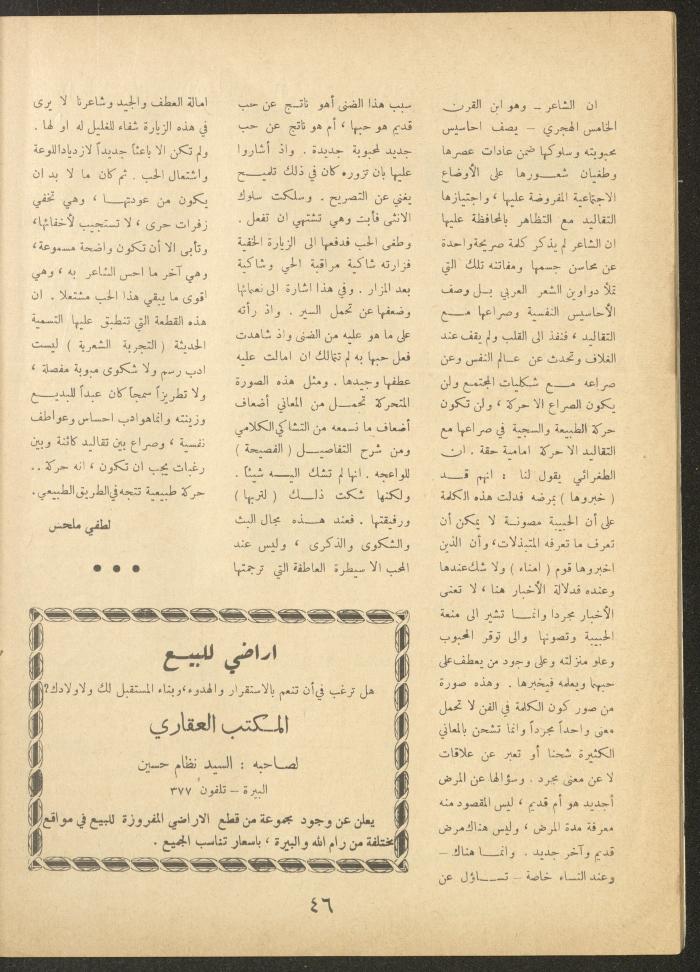 ان الشاعر ــ وهو ابن القرن
الخامس الهجري – يصف احاسيس
محبوبته وسلوكها ضمن عادات عصرها
وطغيان شعــورها على الأوضاع
الاجتماعية المفروضة عليها ، واجتيازها
التقاليد مع التظاهر بالمحافظة عليها
ان الشاعر لم يذكر كلمة صريحة واحدة
عن محاسن جسمها ومفاتنه تلك التي
تملأ دواوين الشعر العربي بــل وصف
الأحاسيس النفسية وصراعها مــع
التقاليد ، فنفذ الى القلب ولم يقف عند
الغلاف وتحدث عن عــالم النفس وعن
صراعه مــع شكليات المجتمع ولن
يكون الصراع الا حركة ، ولن تكون
حركة الطبيعة والسجية في صراعها مع
التقاليد الا حركة امامية حقة . ان
الطغرائي يقول لنا : انهم قــد
( خبروها ) بمرضه فدلت هذه الكلمة
على أن الحبيبة مصونــة لا يمكن أن
تعرف ما تعرفه المتبذلات، وأن الذين
اخبروها قوم ( امناء ) ولا شك عندها
وعنده فدلالة الأخبار هنا ، لا تعنى
الأخبار مجردا وانمــا تشير الى منعة
الحبيبة وتصونها والى توقر المحبوب
وعلو منزلته وعلى وجود من يعطف على
حبهما ويعلمه فيخبرها . وهذه صورة
من صور كون الكلمة في الفن لا تحمل
معنى واحداً مجرداً وانما تشحن بالمعاني
الكثيرة شحنا أو تعبر عن علاقات
لا عن معنى مجرد . وسؤالها عن المرض
أجديد هو أم قديم ، ليس المقصود منه
معرفة مدة المرض ، وليس هناك مرض
قديم وآخر جديد . وانمــا هناك –
وعند النساء خاصة – تســاؤل عن
سبب هذا الضنى أهو ناتــج عن حب
قديم هو حبها ، أم هو ناتج عن حب
جديد لمحبوبة جديدة . واذ أشاروا
عليها بان تزوره كان في ذلك تلميــح
يغني عن التصريح . وسلكت سلوك
الانثى فأبت وهي تشتهي ان تفعل .
وطغى الحب فدفعها الى الزيارة الخفية
فزارته شاكية مراقبة الحي وشاكية
بعد المزار . وفي هذا اشارة الى نعمائها
وضعفها عن تحمل السير . واذ رأته
على ما هو عليه من الضنى واذ شاهدت
فعل حبها به لم تتمالك ان امالت عليه
عطفها وجيدها . ومثل هذه الصورة
المتحركة تحمــل من المعاني أضعاف
أضعاف ما نسمعه من التشاكي الكلامي
ومن شرح التفاصيــل ( الفصيحة )
للواعجه . انها لم تشك اليــه شيئاً .
ولكنها شكت ذلــك ( لتربها )
ورفيقتها . فعند هــذه مجال البث
والشكوى والذكرى ، وليس عند
المحب الا سيطرة العاطفة التي ترجمتها
امالة العطف والجيد وشاعرنا لا يرى
في هذه الزيارة شفاء للغليل له او لها .
ولم تكن الا باعثاً جديداً لازدياد اللوعة
واشتعال الحب . ثم كان ما لا بد ان
يكون من عودتهــا ، وهي تخفي
زفرات حرى ، لا تستجيب لأخفائها،
وتأبى الا أن تكون واضحة مسموعة،
وهي آخر ما احس الشاعر به ، وهي
اقوى ما يبقي هذا الحب مشتعلا . ان
هذه القطعة التي تنطبق عليها التسمية
الحديثة ( التجربة الشعرية ) ليست
ادب رسم ولا شكوى مبوبة مفصلة ،
ولا تطريزاً سمجاً كان عبداً للبديــع
وزينته وانما هو ادب احساس وعواطف
نفسية ، وصراع بين تقاليد كائنة وبين
رغبات يجب ان تكون ، انه حركة . .
حركة طبيعية تتجه في الطريق الطبيعي.
لطفي ملحس
● ● ●
اراضي للبيــع
هل ترغب في أن تنعم بالاستقرار والهدوء، وبناء المستقبل لك ولاولادك؟
المــكتب العقاري
لصاحبه : السيد نظام حسين
البيرة – تلفون ٣٧٧
يعلن عن وجود مجموعة من قطع الاراضي المفروزة للبيع في مواقع
مختلفة من رام الله والبيرة ، باسعار تناسب الجميع .
٤٦